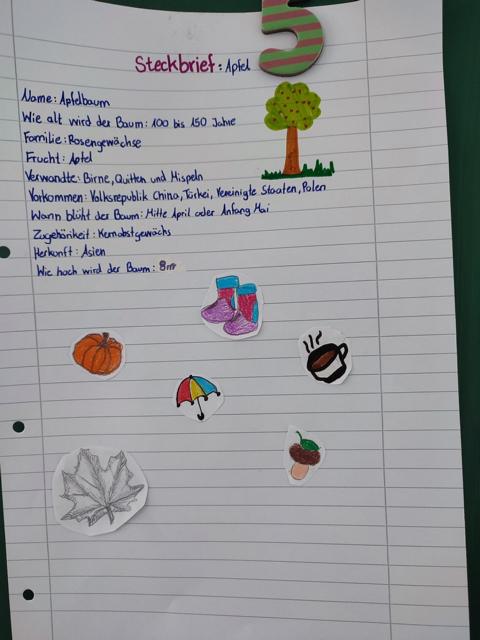 5
Steckbrief: Apfel
Name: Apfelbaum
Wie alt wird der Baum: 100 bis 150 Jahre
Familie: Rosengewächse
Frucht: Apfel
Verwandte: Birne, Quitten und Mispeln
Vorkommen: Volksrepublik China, Türkei, Vereinigte Staaten, Polen
Wann blüht der Baum: Mitte April oder Anfang Mai
Zugehörikeit: Kernobstgewächs
Herkunft: Asien
Wie hoch wird der Baum: 8m